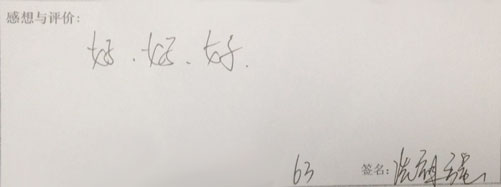 感想与评价：
好、好、好.
63 签名：